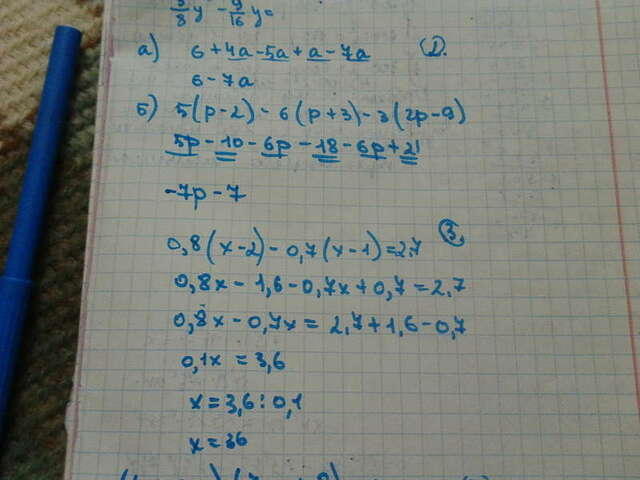 5/8 y - 9/16 y =
а) 6 + 4a - 5a + a - 7a 2.
6 - 7a
б) 5(p - 2) - 6(p + 3) - 3(2p - 9)
5p - 10 - 6p - 18 - 6p + 21
-7p - 7
0,8(x - 2) - 0,7(x - 1) = 2.7 3.
0,8x - 1,6 - 0,7x + 0,7 = 2.7
0,8x - 0,7x = 2,7 + 1,6 - 0,7
0,1x = 3,6
x = 3,6 : 0,1
x = 36